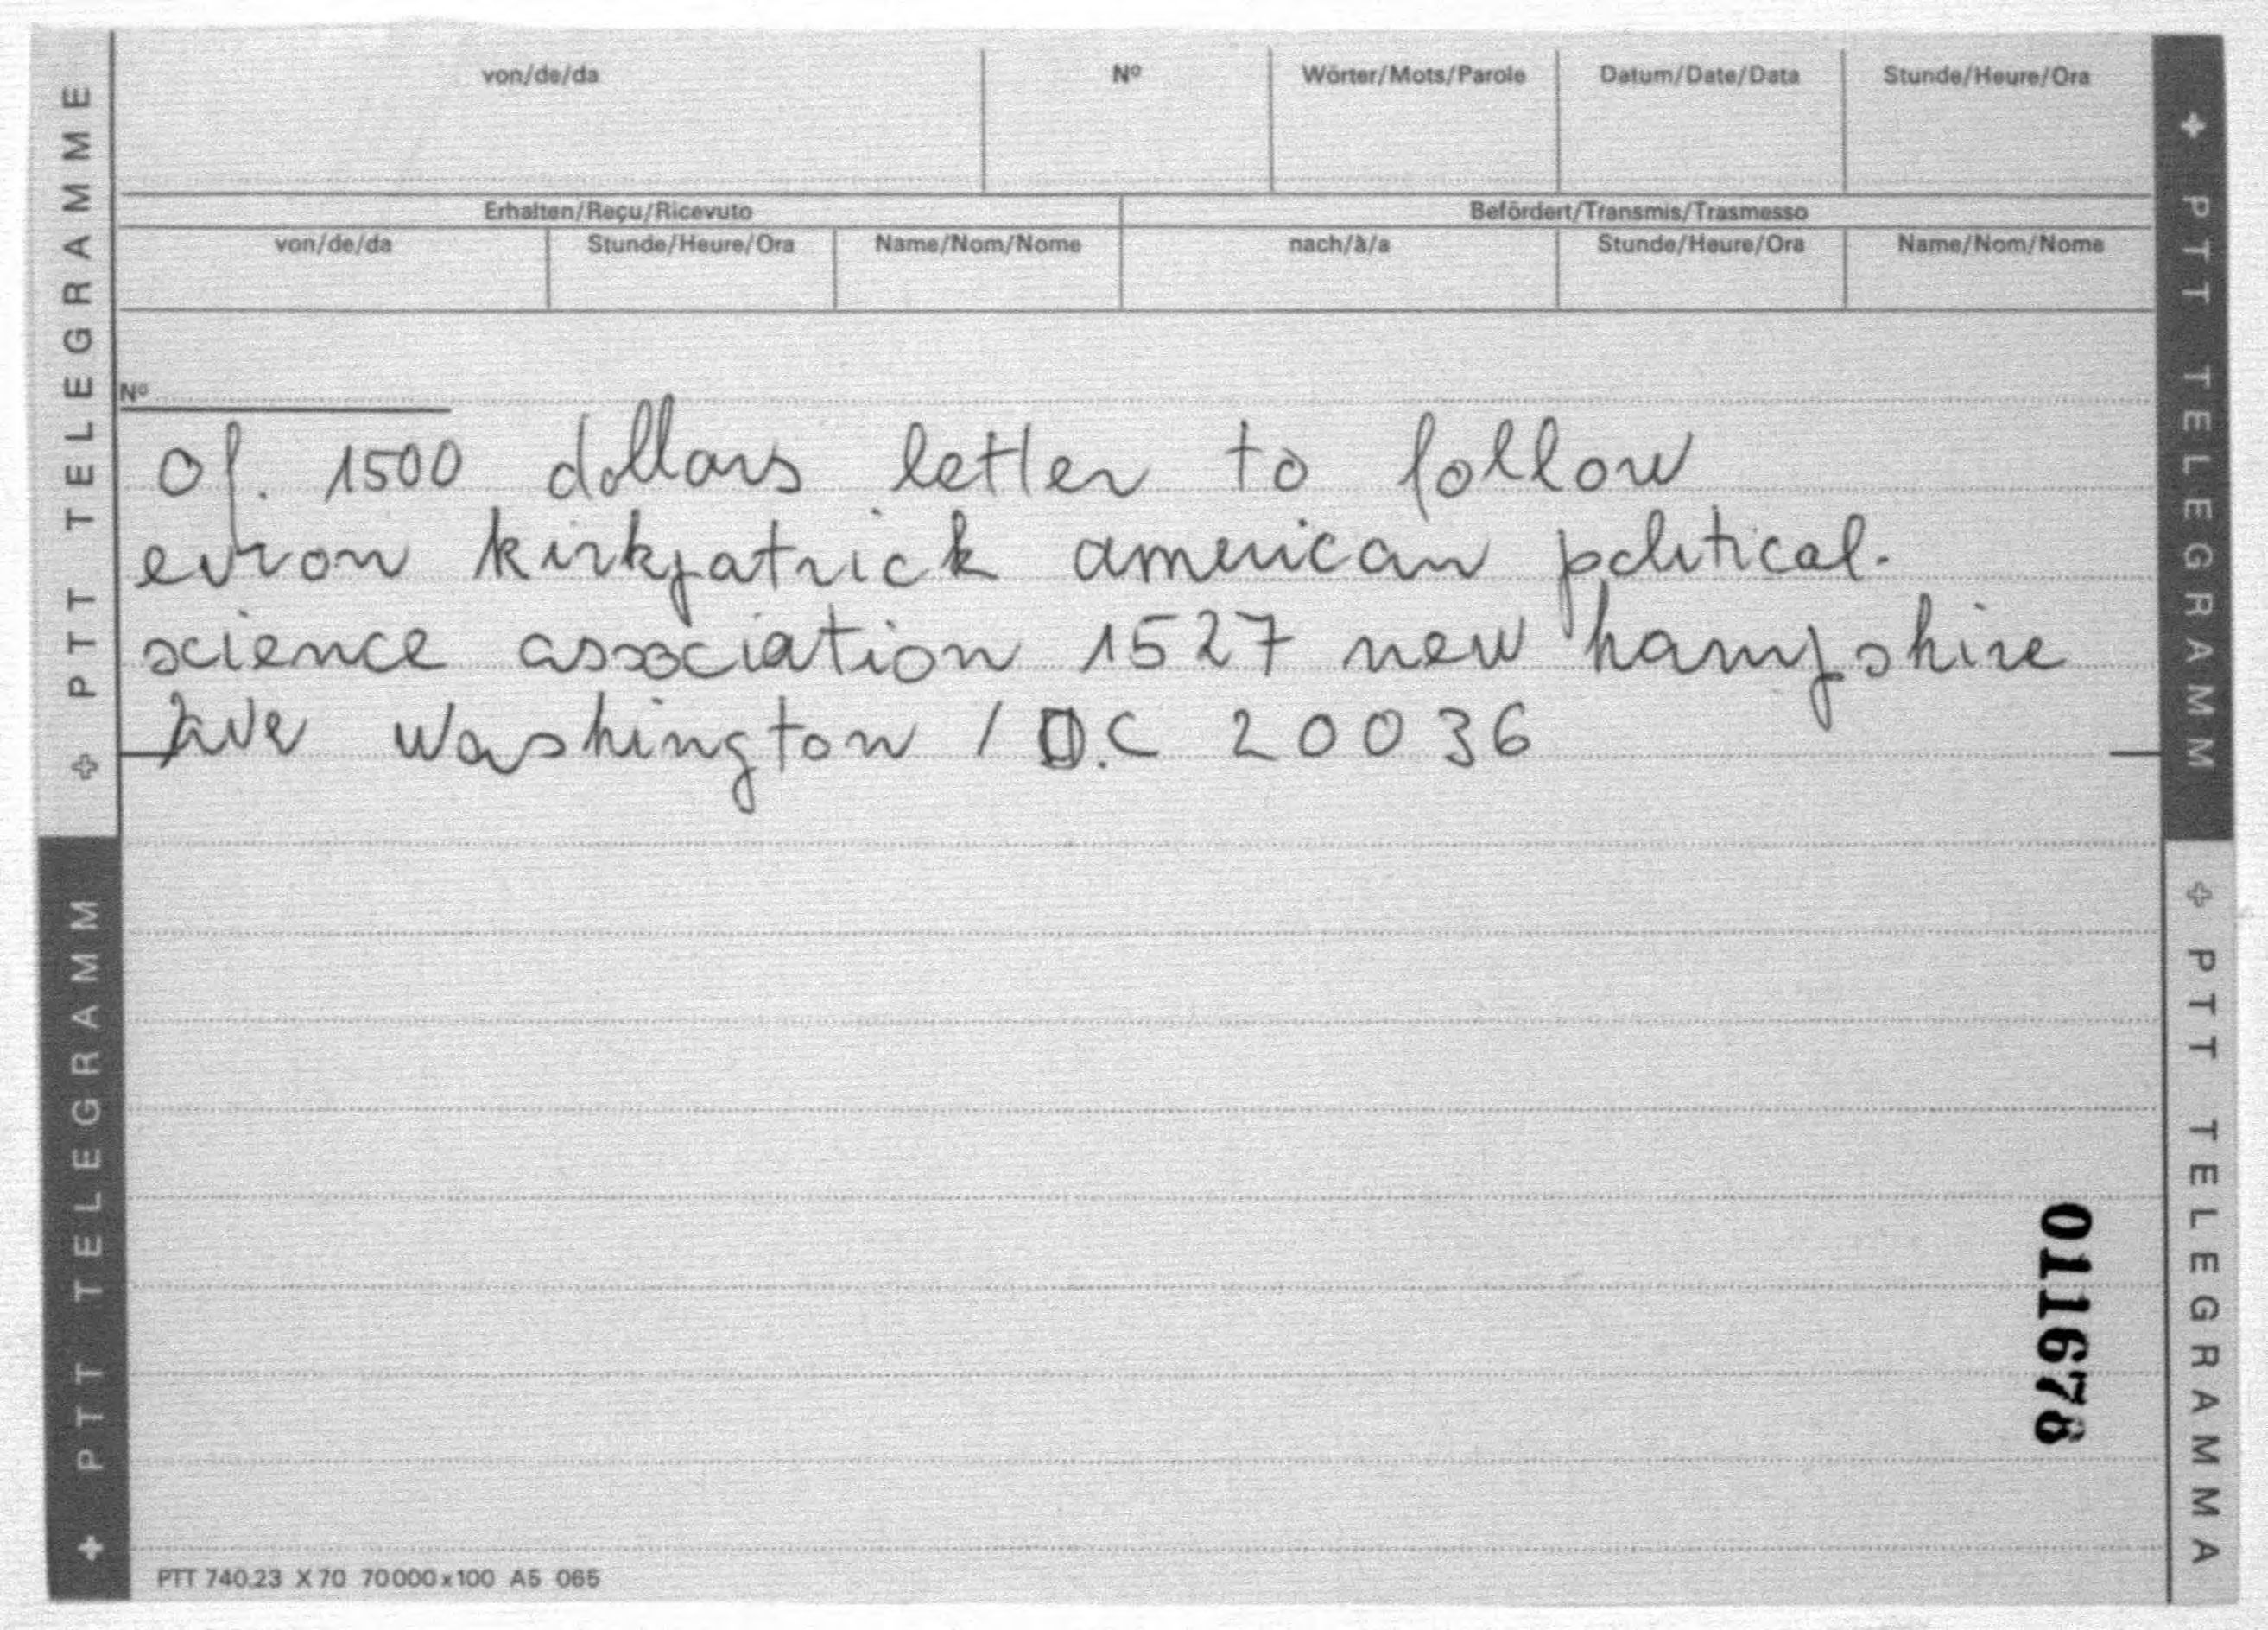 von/de/da Nº Wörter/Mots/Parole Datum/Date/Data Stunde/Heure/Ora
Erhalten/Reçu/Ricevuto Befördert/Transmis/Trasmesso
von/de/da Stunde/Heure/Ora Name/Nom/Nome nach/à/a Stunde/Heure/Ora Name/Nom/Nome
Nº
of. 1500 dollars letter to follow
evron kirkpatrick american political.
science association 1527 new hampshire
ave washington / D.C 20036
PTT 740.23 X 70 70000x100 A5 065
PTT TELEGRAMM PTT TELEGRAMME
PTT TELEGRAMM PTT TELEGRAMMA
011678